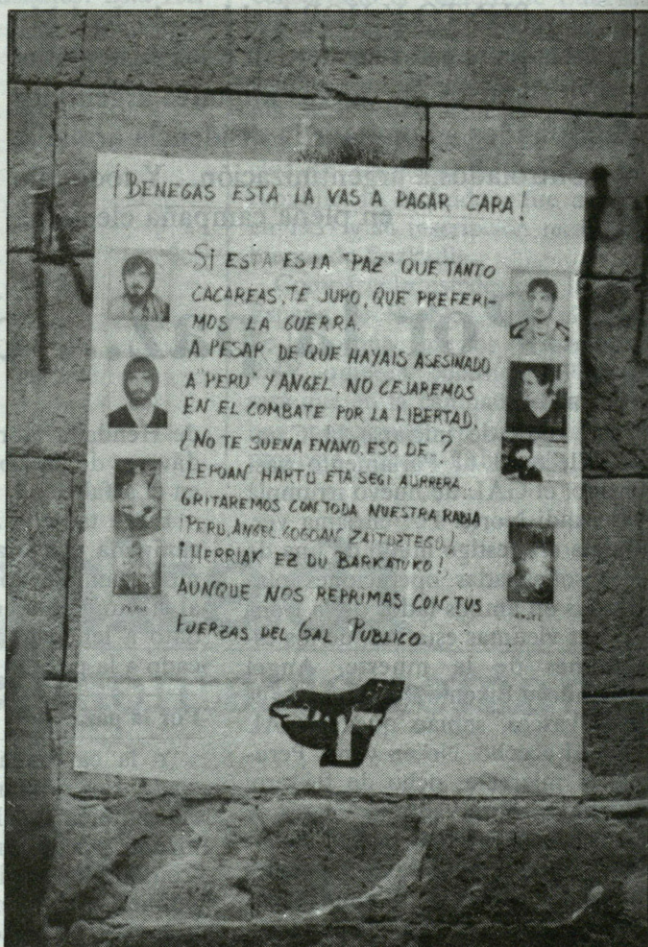 ¡BENEGAS ESTA LA VAS A PAGAR CARA!
SI ESTA ES LA "PAZ" QUE TANTO
CACAREAS, TE JURO, QUE PREFERI-
MOS LA GUERRA.
A PESAR DE QUE HAYAIS ASESINADO
A "PERU" Y ANGEL, NO CEJAREMOS
EN EL COMBATE POR LA LIBERTAD.
¿NO TE SUENA ENANO, ESO DE..?
LEPOAN HARTU ETA SEGI AURRERA..
GRITAREMOS CON TODA NUESTRA RABIA
¡PERU, ANGEL GOGOAN ZAITUZTEGU!
¡HERRIAK EZ DU BARKATUKO!
AUNQUE NOS REPRIMAS CON TUS
FUERZAS DEL GAL PUBLICO
PERU